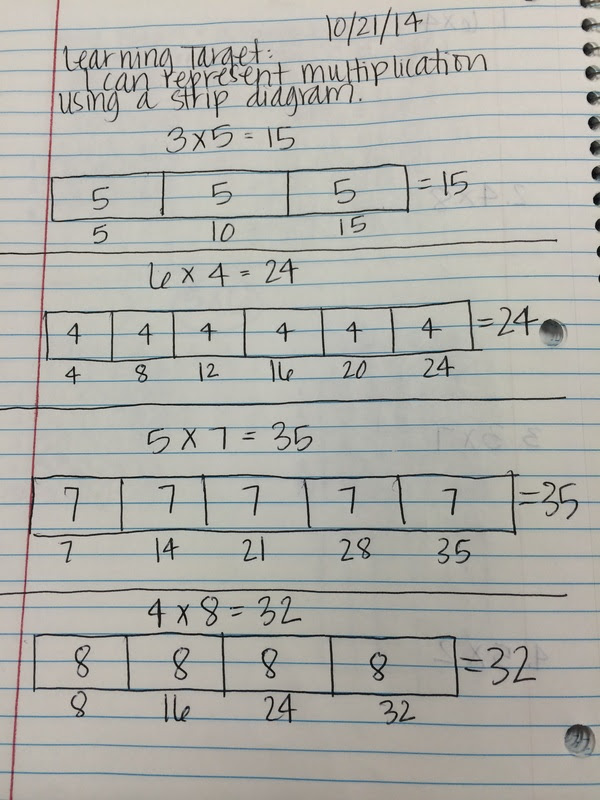 10/21/14
Learning Target:
I can represent multiplication
using a strip diagram.
3×5 = 15
5 5 5 = 15
5 10 15
6 × 4 = 24
4 4 4 4 4 4 = 24
4 8 12 16 20 24
5 × 7 = 35
7 7 7 7 7 = 35
7 14 21 28 35
4 × 8 = 32
8 8 8 8 = 32
8 16 24 32